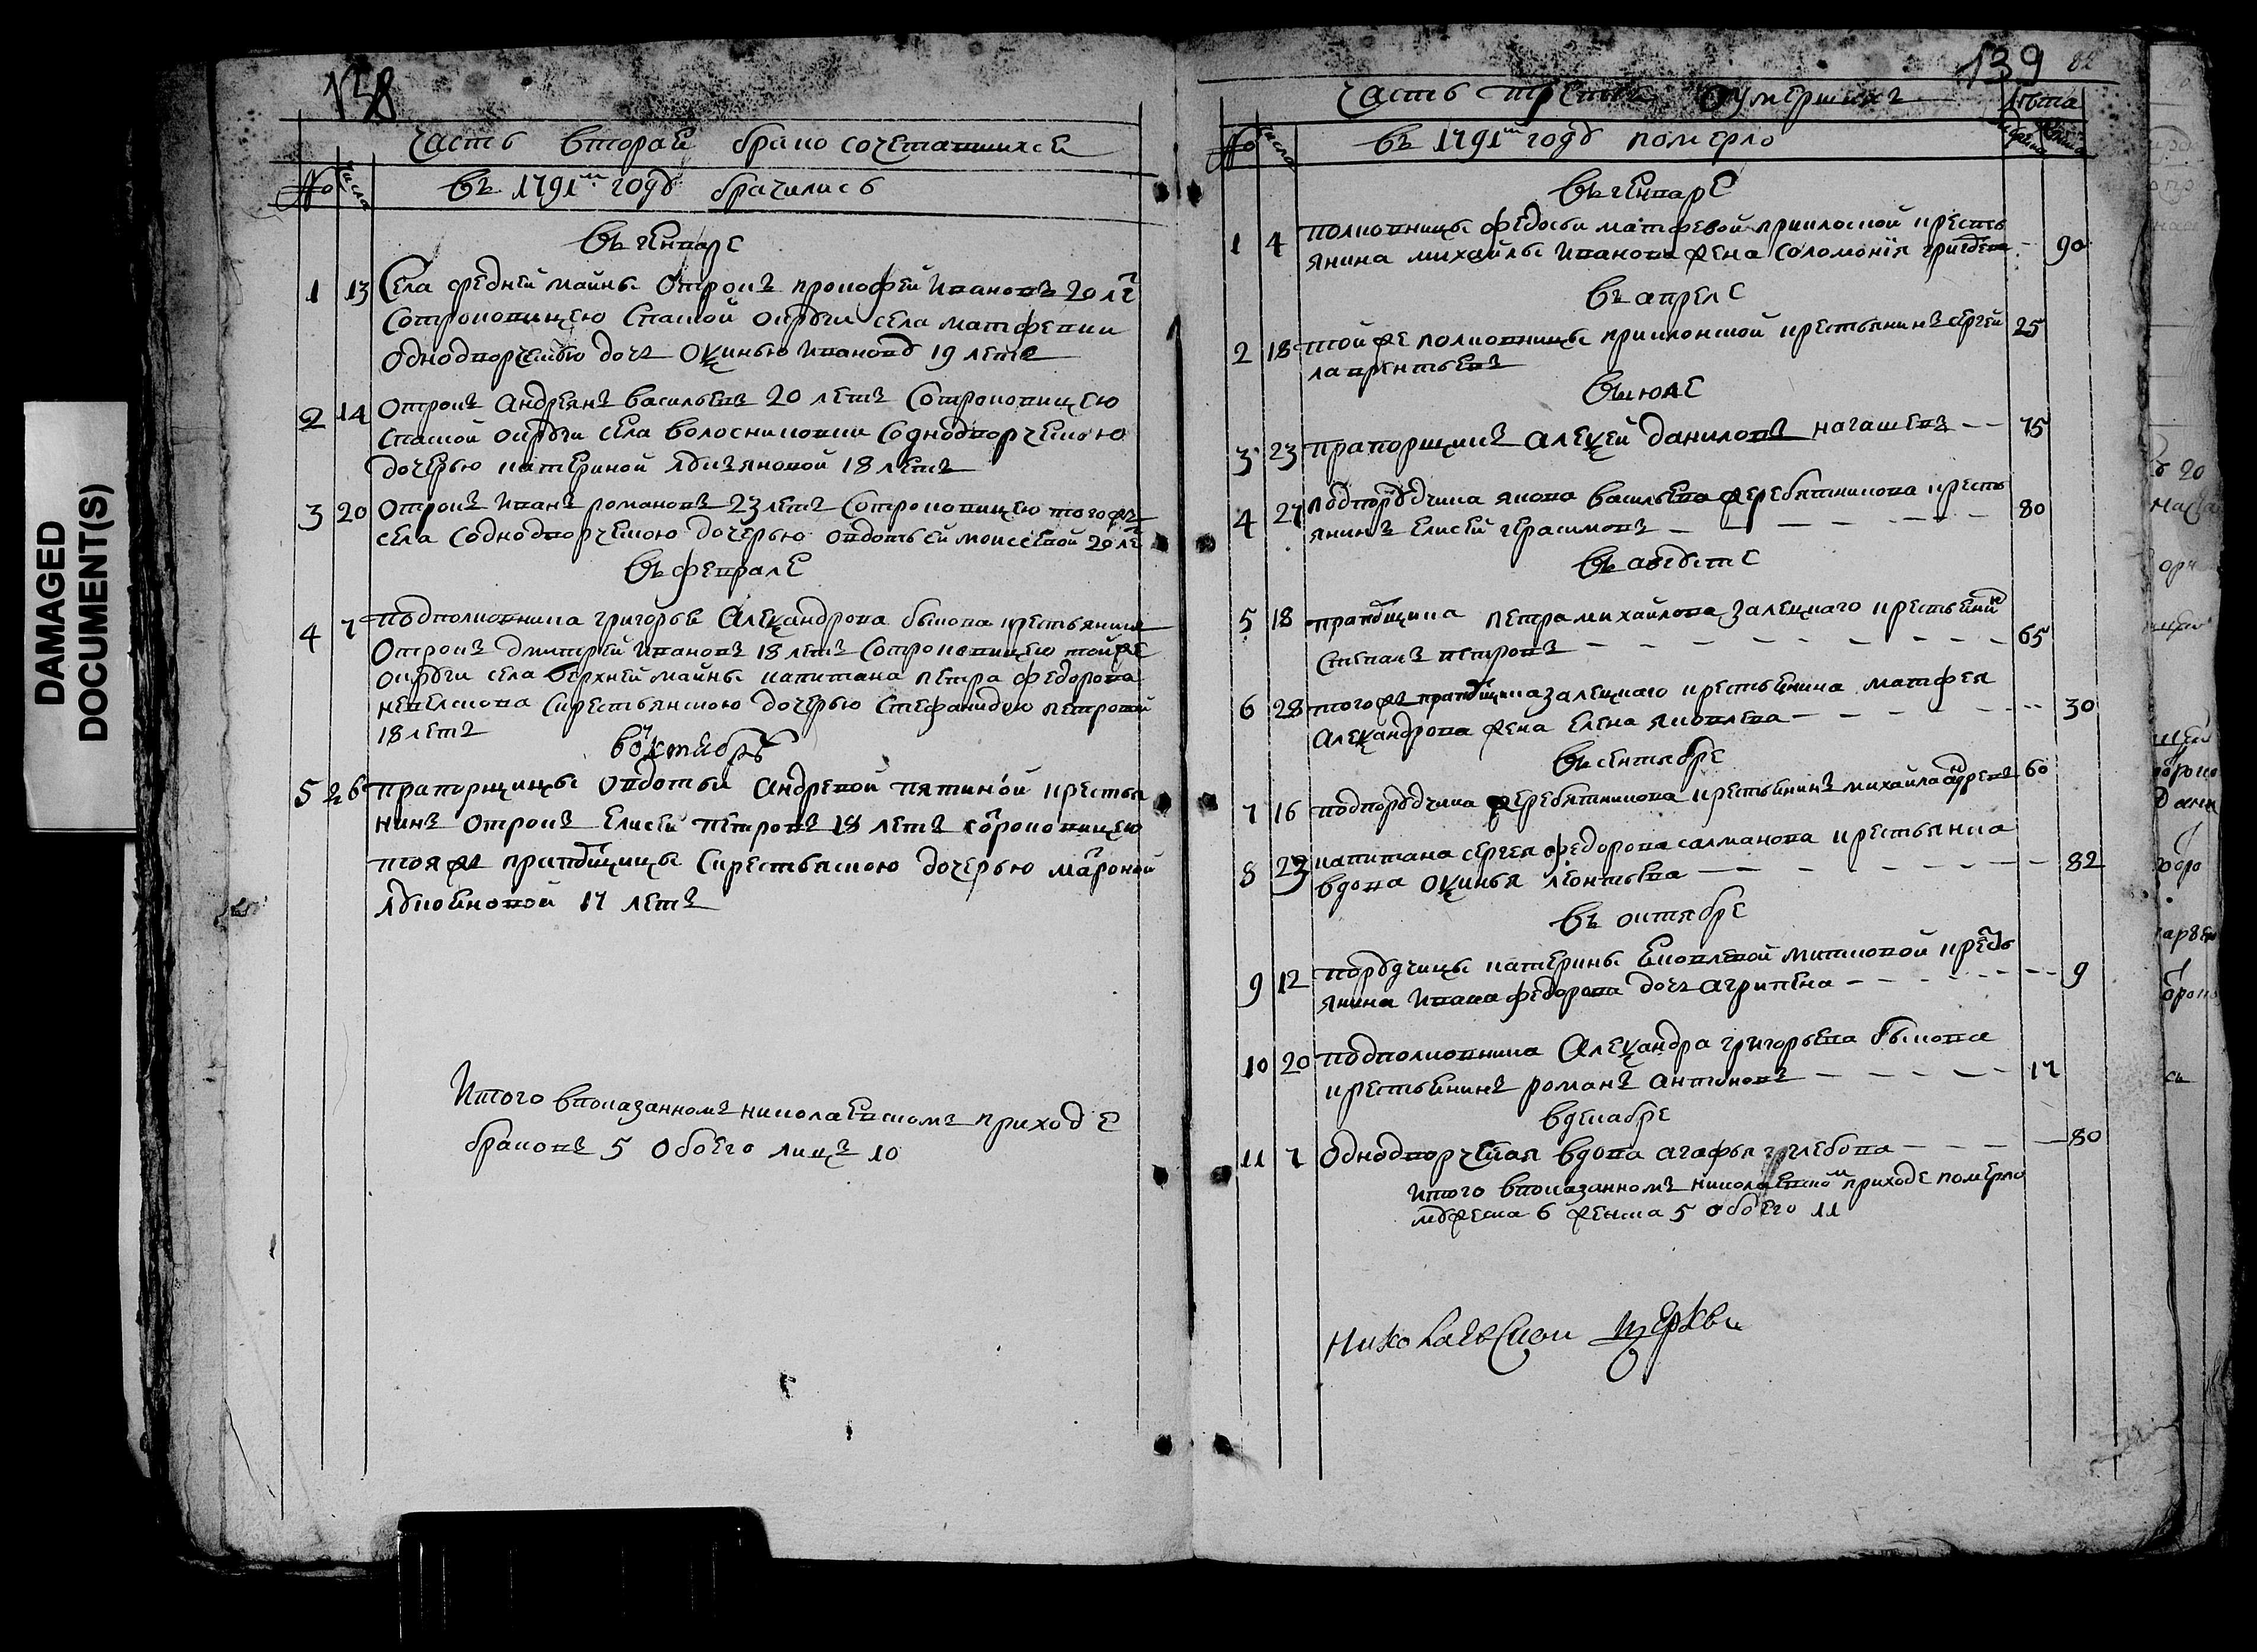 DAMAGED
DOCUMENT(S)
138
Часть вторая бракосочетавшихся
№ числа въ 1791м году брачились
въ генваре
1 13 Села средней майны отрокъ прокофей Ивановъ 20 ле
Сотроковицею Спаской округи села матфевки
однодворческою дочь Оксинью Иванову 19 летъ
2 14 Отрокъ Андреянъ васильевъ 20 летъ Сотроковицею
Спаской округи села волосниковки Соднодворческою
дочерью катериной лукъяновой 18 летъ
3 20 Отрокъ Иванъ романовъ 23 летъ Сотроковицею тогожъ
села Соднодворческою дочерью овдотьей моисевой 20 ле
въ феврале
4 7 подполковника григорья Александрова быкова крестьянина
Отрокъ дмитрей Ивановъ 18 летъ Сотроковицею тойже
округи села верхней майны капитана петра федорова
Скрестьянскою дочерью Стефанидою петровой
18 летъ
воктябрь
5 26 прапорщицы овдотьи андревой пятиной крестья
нинъ отрокъ Елисей петровъ 18 летъ сотроковицею
тояже прапощицы Скрестьяскою дочерью матроной
лукояновой 17 летъ
Итого впоказанномъ николаевскомъ приходе
браковъ 5 обоего лицъ 10
139 82
Часть третья Оумершихъ Лета
№ числа въ 1791м году померло
въ генваре
1 4 полковницы федосьи матфевой приклоской кресть
янина михайлы Иванова жена Соломонія григорева 90
въ апреле
2 18 тойже полковницы приклонской крестьянинъ сергей 25
лаврентьевъ
въ июле
3 23 прапорщикъ Алексей даниловъ нагашевъ 75
4 27 подпорудчика якова васильева жеребятникова кресть
янинъ Елисей герасимовъ 80
въ августе
5 18 прапощика петра михайлова залецкаго крестьянин
Степанъ петровъ 65
6 28 тогожъ прапощика залецкаго крестьянина матфея
Александрова жена Елена яковлева 30
въ сентябре
7 16 подпорудчика жеребятникова крестьянинъ михайла андревъ 60
8 23 капитана сергея федорова салманова крестьянка
вдова Оксинья леонтьева 82
въ октябре
9 12 порудчицы катерины Яковлевой митковой кресть
янина Ивана федорова дочь агрипена 9
10 20 подполковника Александра григорьева быкова
крестьянинъ романъ антоновъ 17
вдекабре
11 7 Однодворческая вдова агафья глебова 80
Итого впоказанномъ николаевском приходе померло
мужеска 6 женска 5 обоего 11
Николаевской церкви